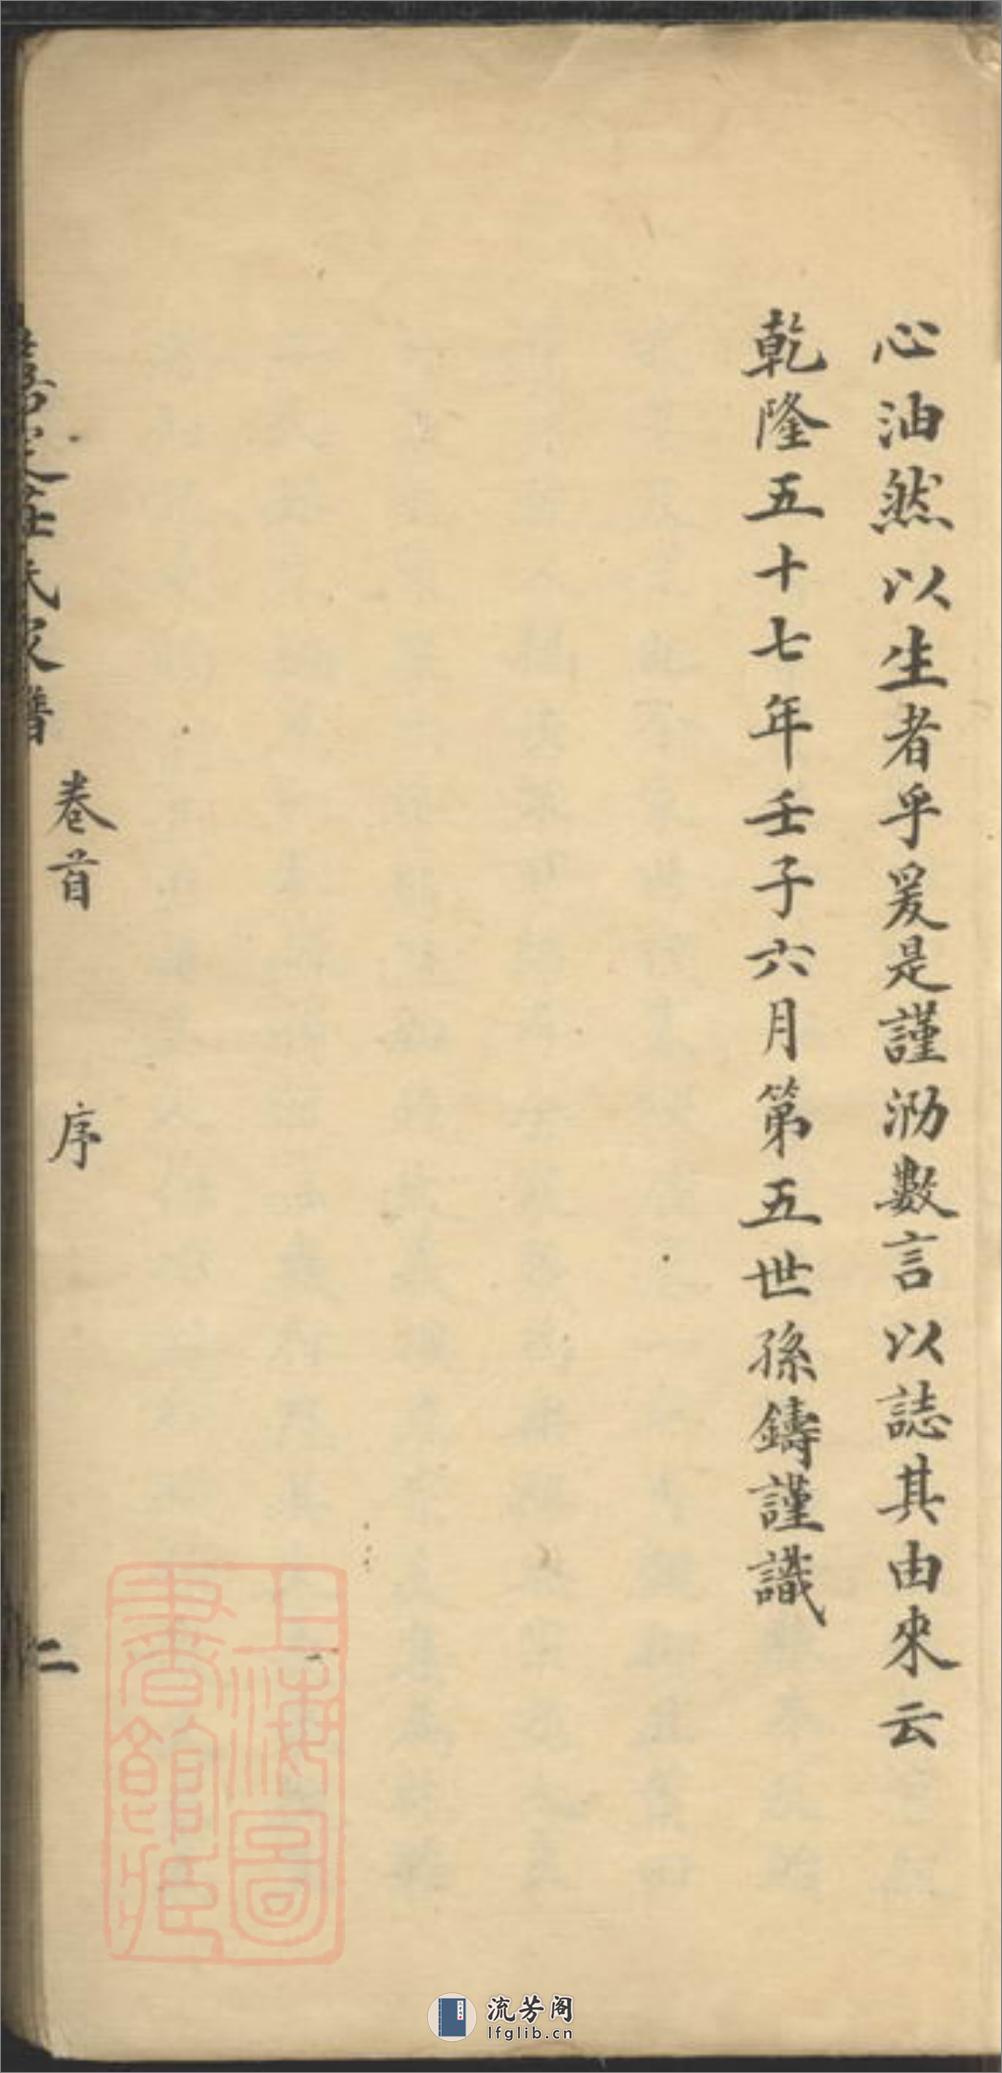 心油然以生者乎爰是謹泐數言以誌其由來云
乾隆五十七年壬子六月第五世孫鑄謹識
嘉定莊氏家譜
卷首
序
二
上海圖
書館藏
流芳阁
lfglib.cn